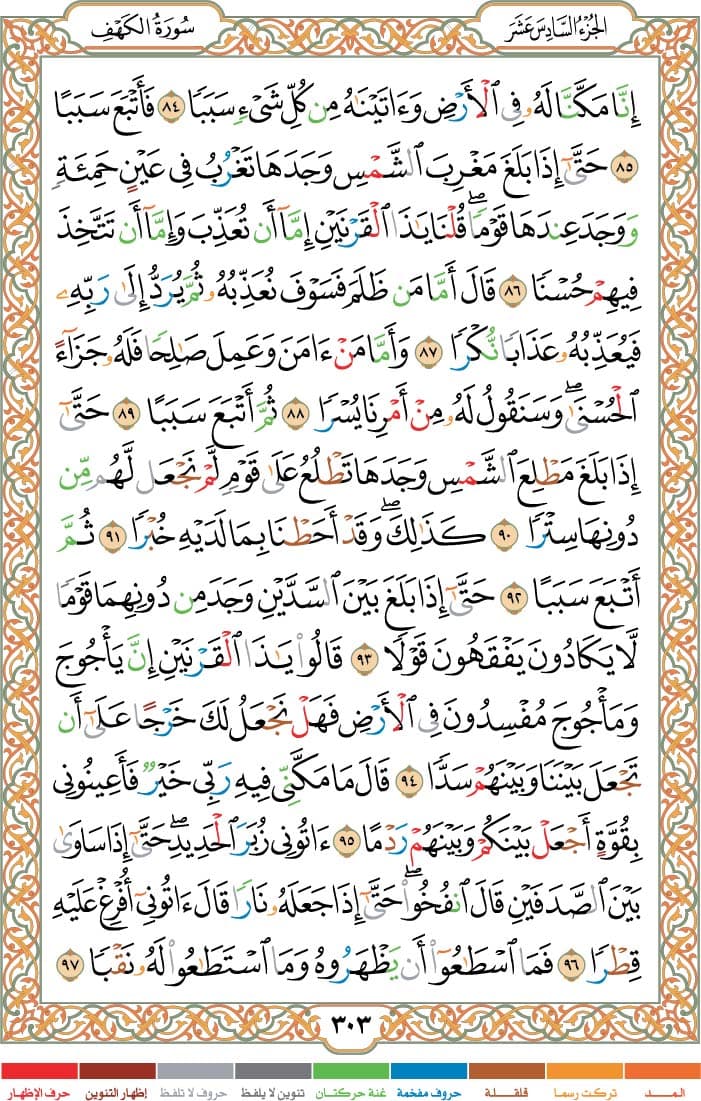 الجزء السادس عشر
سورة الكهف
إِنَّا مَكَّنَّا لَهُۥ فِى ٱلْأَرْضِ وَءَاتَيْنَٰهُ مِن كُلِّ شَىْءٍ سَبَبًا ٨٤ فَأَتْبَعَ سَبَبًا
٨٥ حَتَّىٰٓ إِذَا بَلَغَ مَغْرِبَ ٱلشَّمْسِ وَجَدَهَا تَغْرُبُ فِى عَيْنٍ حَمِئَةٍ
وَوَجَدَ عِندَهَا قَوْمًا ۖ قُلْنَا يَٰذَا ٱلْقَرْنَيْنِ إِمَّآ أَن تُعَذِّبَ وَإِمَّآ أَن تَتَّخِذَ
فِيهِمْ حُسْنًا ٨٦ قَالَ أَمَّا مَن ظَلَمَ فَسَوْفَ نُعَذِّبُهُۥ ثُمَّ يُرَدُّ إِلَىٰ رَبِّهِۦ
فَيُعَذِّبُهُۥ عَذَابًا نُّكْرًا ٨٧ وَأَمَّا مَنْ ءَامَنَ وَعَمِلَ صَٰلِحًا فَلَهُۥ جَزَآءً
ٱلْحُسْنَىٰ ۖ وَسَنَقُولُ لَهُۥ مِنْ أَمْرِنَا يُسْرًا ٨٨ ثُمَّ أَتْبَعَ سَبَبًا ٨٩ حَتَّىٰٓ
إِذَا بَلَغَ مَطْلِعَ ٱلشَّمْسِ وَجَدَهَا تَطْلُعُ عَلَىٰ قَوْمٍ لَّمْ نَجْعَل لَّهُم مِّن
دُونِهَا سِتْرًا ٩٠ كَذَٰلِكَ ۖ وَقَدْ أَحَطْنَا بِمَا لَدَيْهِ خُبْرًا ٩١ ثُمَّ
أَتْبَعَ سَبَبًا ٩٢ حَتَّىٰٓ إِذَا بَلَغَ بَيْنَ ٱلسَّدَّيْنِ وَجَدَ مِن دُونِهِمَا قَوْمًا
لَّا يَكَادُونَ يَفْقَهُونَ قَوْلًا ٩٣ قَالُوا۟ يَٰذَا ٱلْقَرْنَيْنِ إِنَّ يَأْجُوجَ
وَمَأْجُوجَ مُفْسِدُونَ فِى ٱلْأَرْضِ فَهَلْ نَجْعَلُ لَكَ خَرْجًا عَلَىٰٓ أَن
تَجْعَلَ بَيْنَنَا وَبَيْنَهُمْ سَدًّا ٩٤ قَالَ مَا مَكَّنِّى فِيهِ رَبِّى خَيْرٌ فَأَعِينُونِى
بِقُوَّةٍ أَجْعَلْ بَيْنَكُمْ وَبَيْنَهُمْ رَدْمًا ٩٥ ءَاتُونِى زُبَرَ ٱلْحَدِيدِ ۖ حَتَّىٰٓ إِذَا سَاوَىٰ
بَيْنَ ٱلصَّدَفَيْنِ قَالَ ٱنفُخُوا۟ ۖ حَتَّىٰٓ إِذَا جَعَلَهُۥ نَارًا قَالَ ءَاتُونِىٓ أُفْرِغْ عَلَيْهِ
قِطْرًا ٩٦ فَمَا ٱسْطَٰعُوٓا۟ أَن يَظْهَرُوهُ وَمَا ٱسْتَطَٰعُوا۟ لَهُۥ نَقْبًا ٩٧
٣٠٣
المـــد تركت رسما قلقـــلة حروف مفخمة غنة حركتـان تنوين لا يلفظ حروف لا تلفظ إظهار التنوين حرف الإظهار